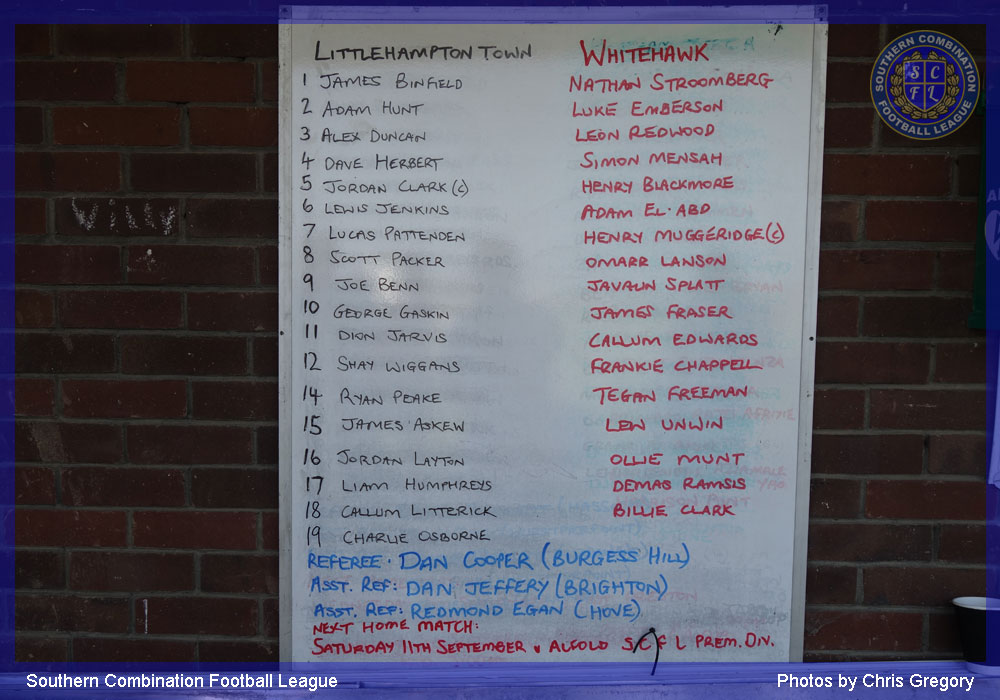 LITTLEHAMPTON TOWN WHITEHAWK
1 JAMES BINFIELD NATHAN STROOMBERG
2 ADAM HUNT LUKE EMBERSON
3 ALEX DUNCAN LEON REDWOOD
4 DAVE HERBERT SIMON MENSAH
5 JORDAN CLARK (C) HENRY BLACKMORE
6 LEWIS JENKINS ADAM EL-ABD
7 LUCAS PATTENDEN HENRY MUGGERIDGE (C)
8 SCOTT PACKER OMARR LANSON
9 JOE BENN JAVAUN SPLATT
10 GEORGE GASKIN JAMES FRASER
11 DION JARVIS CALLUM EDWARDS
12 SHAY WIGGANS FRANKIE CHAPPELL
14 RYAN PEAKE TEGAN FREEMAN
15 JAMES ASKEW LEW UNWIN
16 JORDAN LAYTON OLLIE MUNT
17 LIAM HUMPHREYS DEMAS RAMSIS
18 CALLUM LITTERICK BILLIE CLARK
19 CHARLIE OSBORNE
REFEREE. DAN COOPER (BURGESS HILL)
ASST. REF: DAN JEFFERY (BRIGHTON)
ASST. REF: REDMOND EGAN (HOVE)
NEXT HOME MATCH:
SATURDAY 11TH SEPTEMBER v ALFOLD S C F L PREM. DIV.
WILLY
SOUTHERN COMBINATION
S C
F L
FOOTBALL LEAGUE
Southern Combination Football League Photos by Chris Gregory